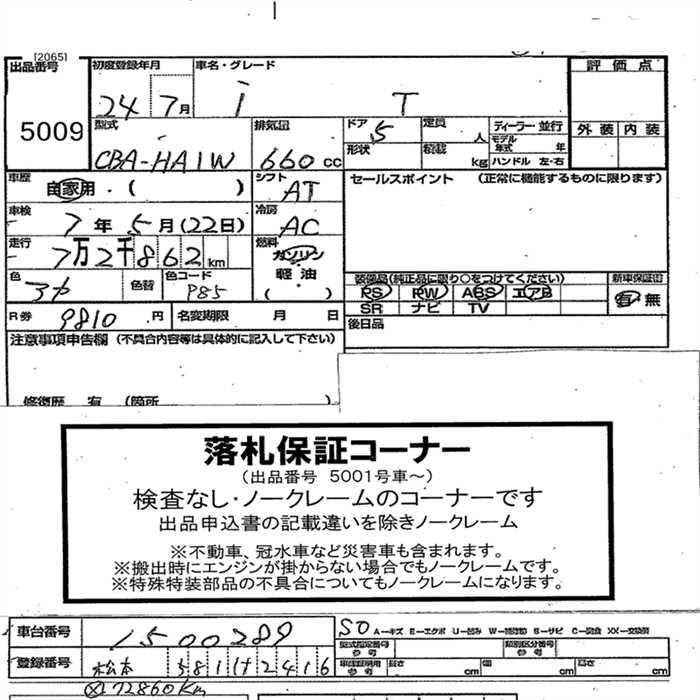 [20651
出品番号 初度登録年月 車名・グレード 評価点
5009 24 7月 i T
型式 排気量 ドア 定員 ディーラー・並行 外装 内装
CBA-HA1W 660cc 5 人 モデル年式 年
形状 積載 kg ハンドル 左・右
車歴 シフト セールスポイント (正常に機能するものに限ります)
自家用・( ) AT
車検 冷房
7年5月(22日) AC
走行 燃料
7万2千862km ガソリン
軽油
( )
色 色替 色コード 装備品(純正品に限り○をつけてください) 新車保証書
P85 PS PW ABS エアB 有・無
SR ナビ TV
R券 9810円 名変期限 月 日 後日品
注意事項申告欄 (不具合内容等は具体的に記入して下さい)
修復歴 有 (箇所
落札保証コーナー
(出品番号 5001号車~)
検査なし・ノークレームのコーナーです
出品申込書の記載違いを除きノークレーム
※不動車、冠水車など災害車も含まれます。
※搬出時にエンジンが掛からない場合でもノークレームです。
※特殊特装部品の不具合についてもノークレームになります。
車台番号 1500289 SO A-キズ E-エクボ U-凹み W-補修跡 B-サビ C-腐食 XX-交換済
型式指定番号 参考 類別区分番号 参考
登録番号 松本 581 2416 車庫証明用 参考 長さ cm 幅 cm 高さ cm
72860Km